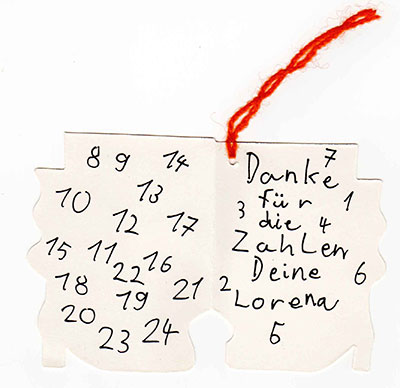 8 9 14
10 13
12 17
15 11 16
22
18 19 21
20
23 24
7
Danke
für 1
3 die 4
Zahlen
Deine 6
2 Lorena
5